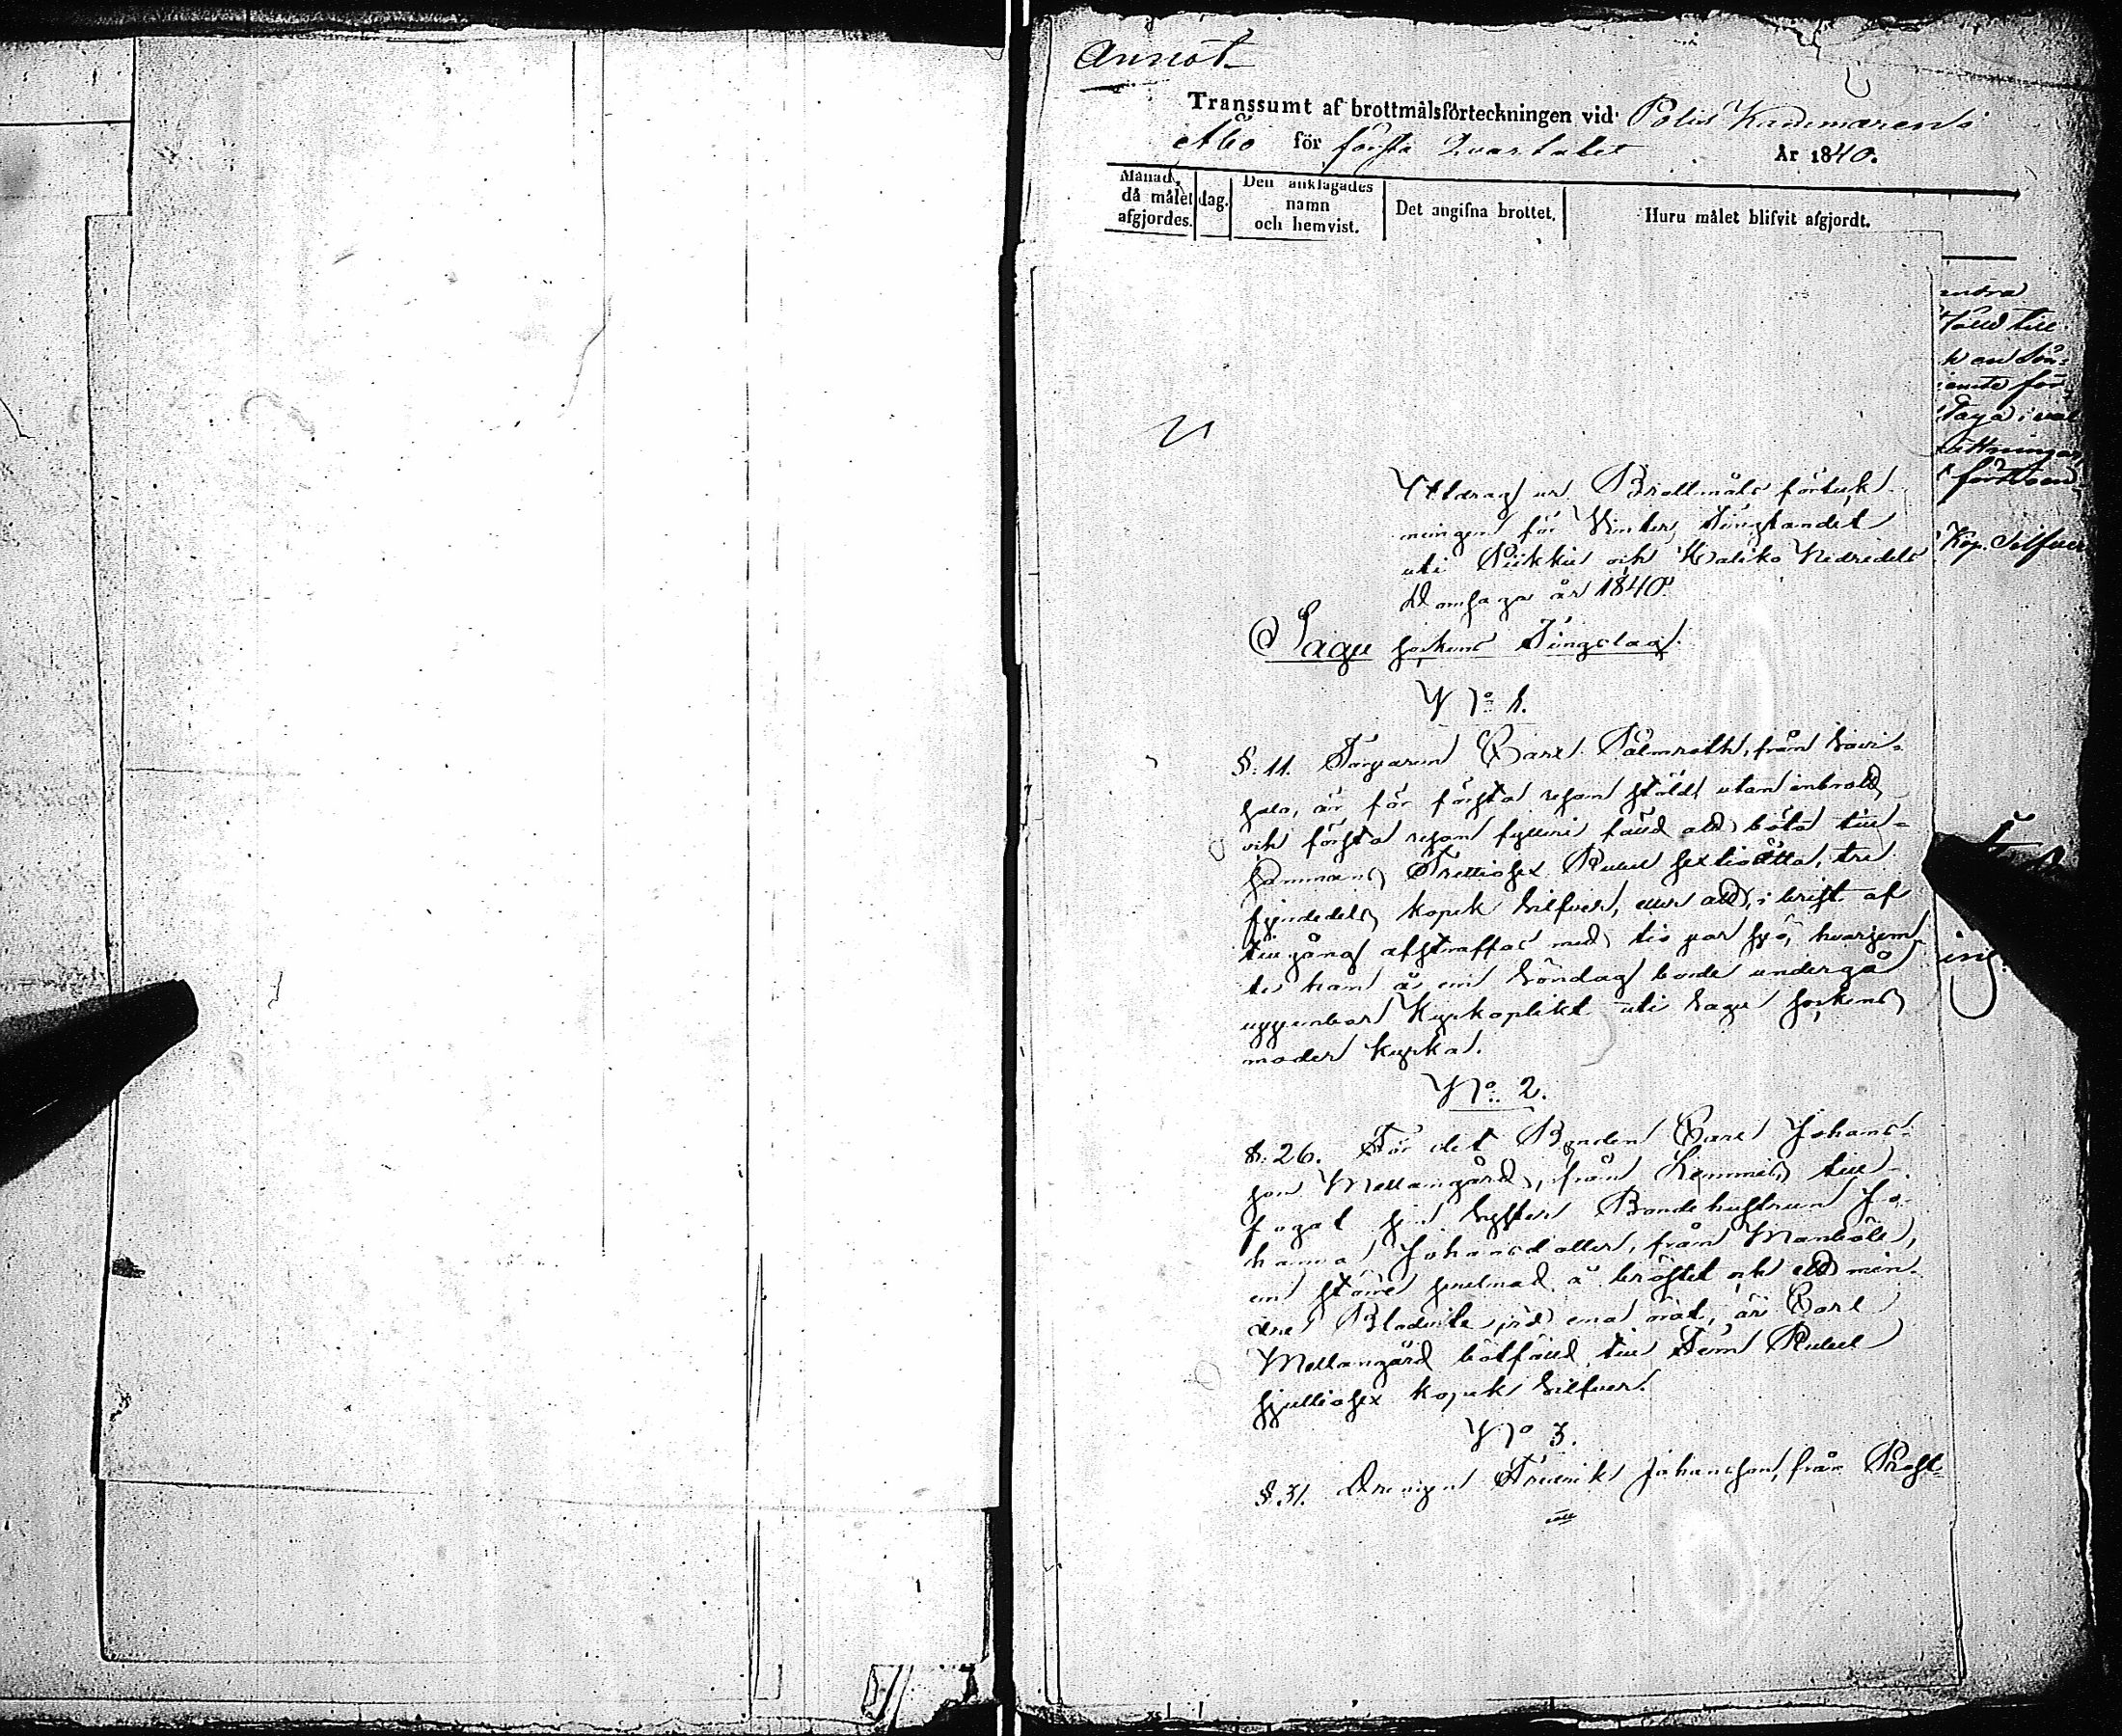 Annot.
Transsumt af brottmålsförteckningen vid Polis Kammaren i
Åbo för första Quartalet År 1840.
Månad, då målet afgjordes. dag. Den anklagades namn och hemvist. Det angifna brottet. Huru målet blifvit afgjordt.
Utdrag ur Brottmåls förteck-
ningen för Vinter Tingtandet
uti Piikkis och Haliko Nedredels
Domsaga år 1840.
Sagu sockens Tingslag.
No 1.
§. 11. Torparen Carl Palmroth, från Savi-
salo, är för första resan stöld utan inbrott
och första resan fylleri fälld att böta till-
sammans Trettiosex Rubel sextioåtta, tre
fjerdedels kopek Silfver, eller att, i brist af
tillgång afstraffas med tio par spö, hvarjem-
te han å en Söndag borde undergå
uppenbar Kyrkoplikt uti Sagu sockens
moder kyrka.
No 2.
§. 26. För det Bonden Carl Johans-
son Mellangård, från Kemmis, till-
fogat sin Syster Bonde hustrun Jo-
hanna Johansdotter, från Manböle,
en större svullnad å bröstet och ett min-
dre Blodvite vid ena örat, är Carl
Mellangård botfälld till Fem Rubel
sjuttiosex kopek Silfver.
No 3.
§. 31. Drengen Fredrik Johansson, från Prest-
andra
fälld till
en Sön-
jemte för
taga i
sättningar
Kop. Silfver
ing.